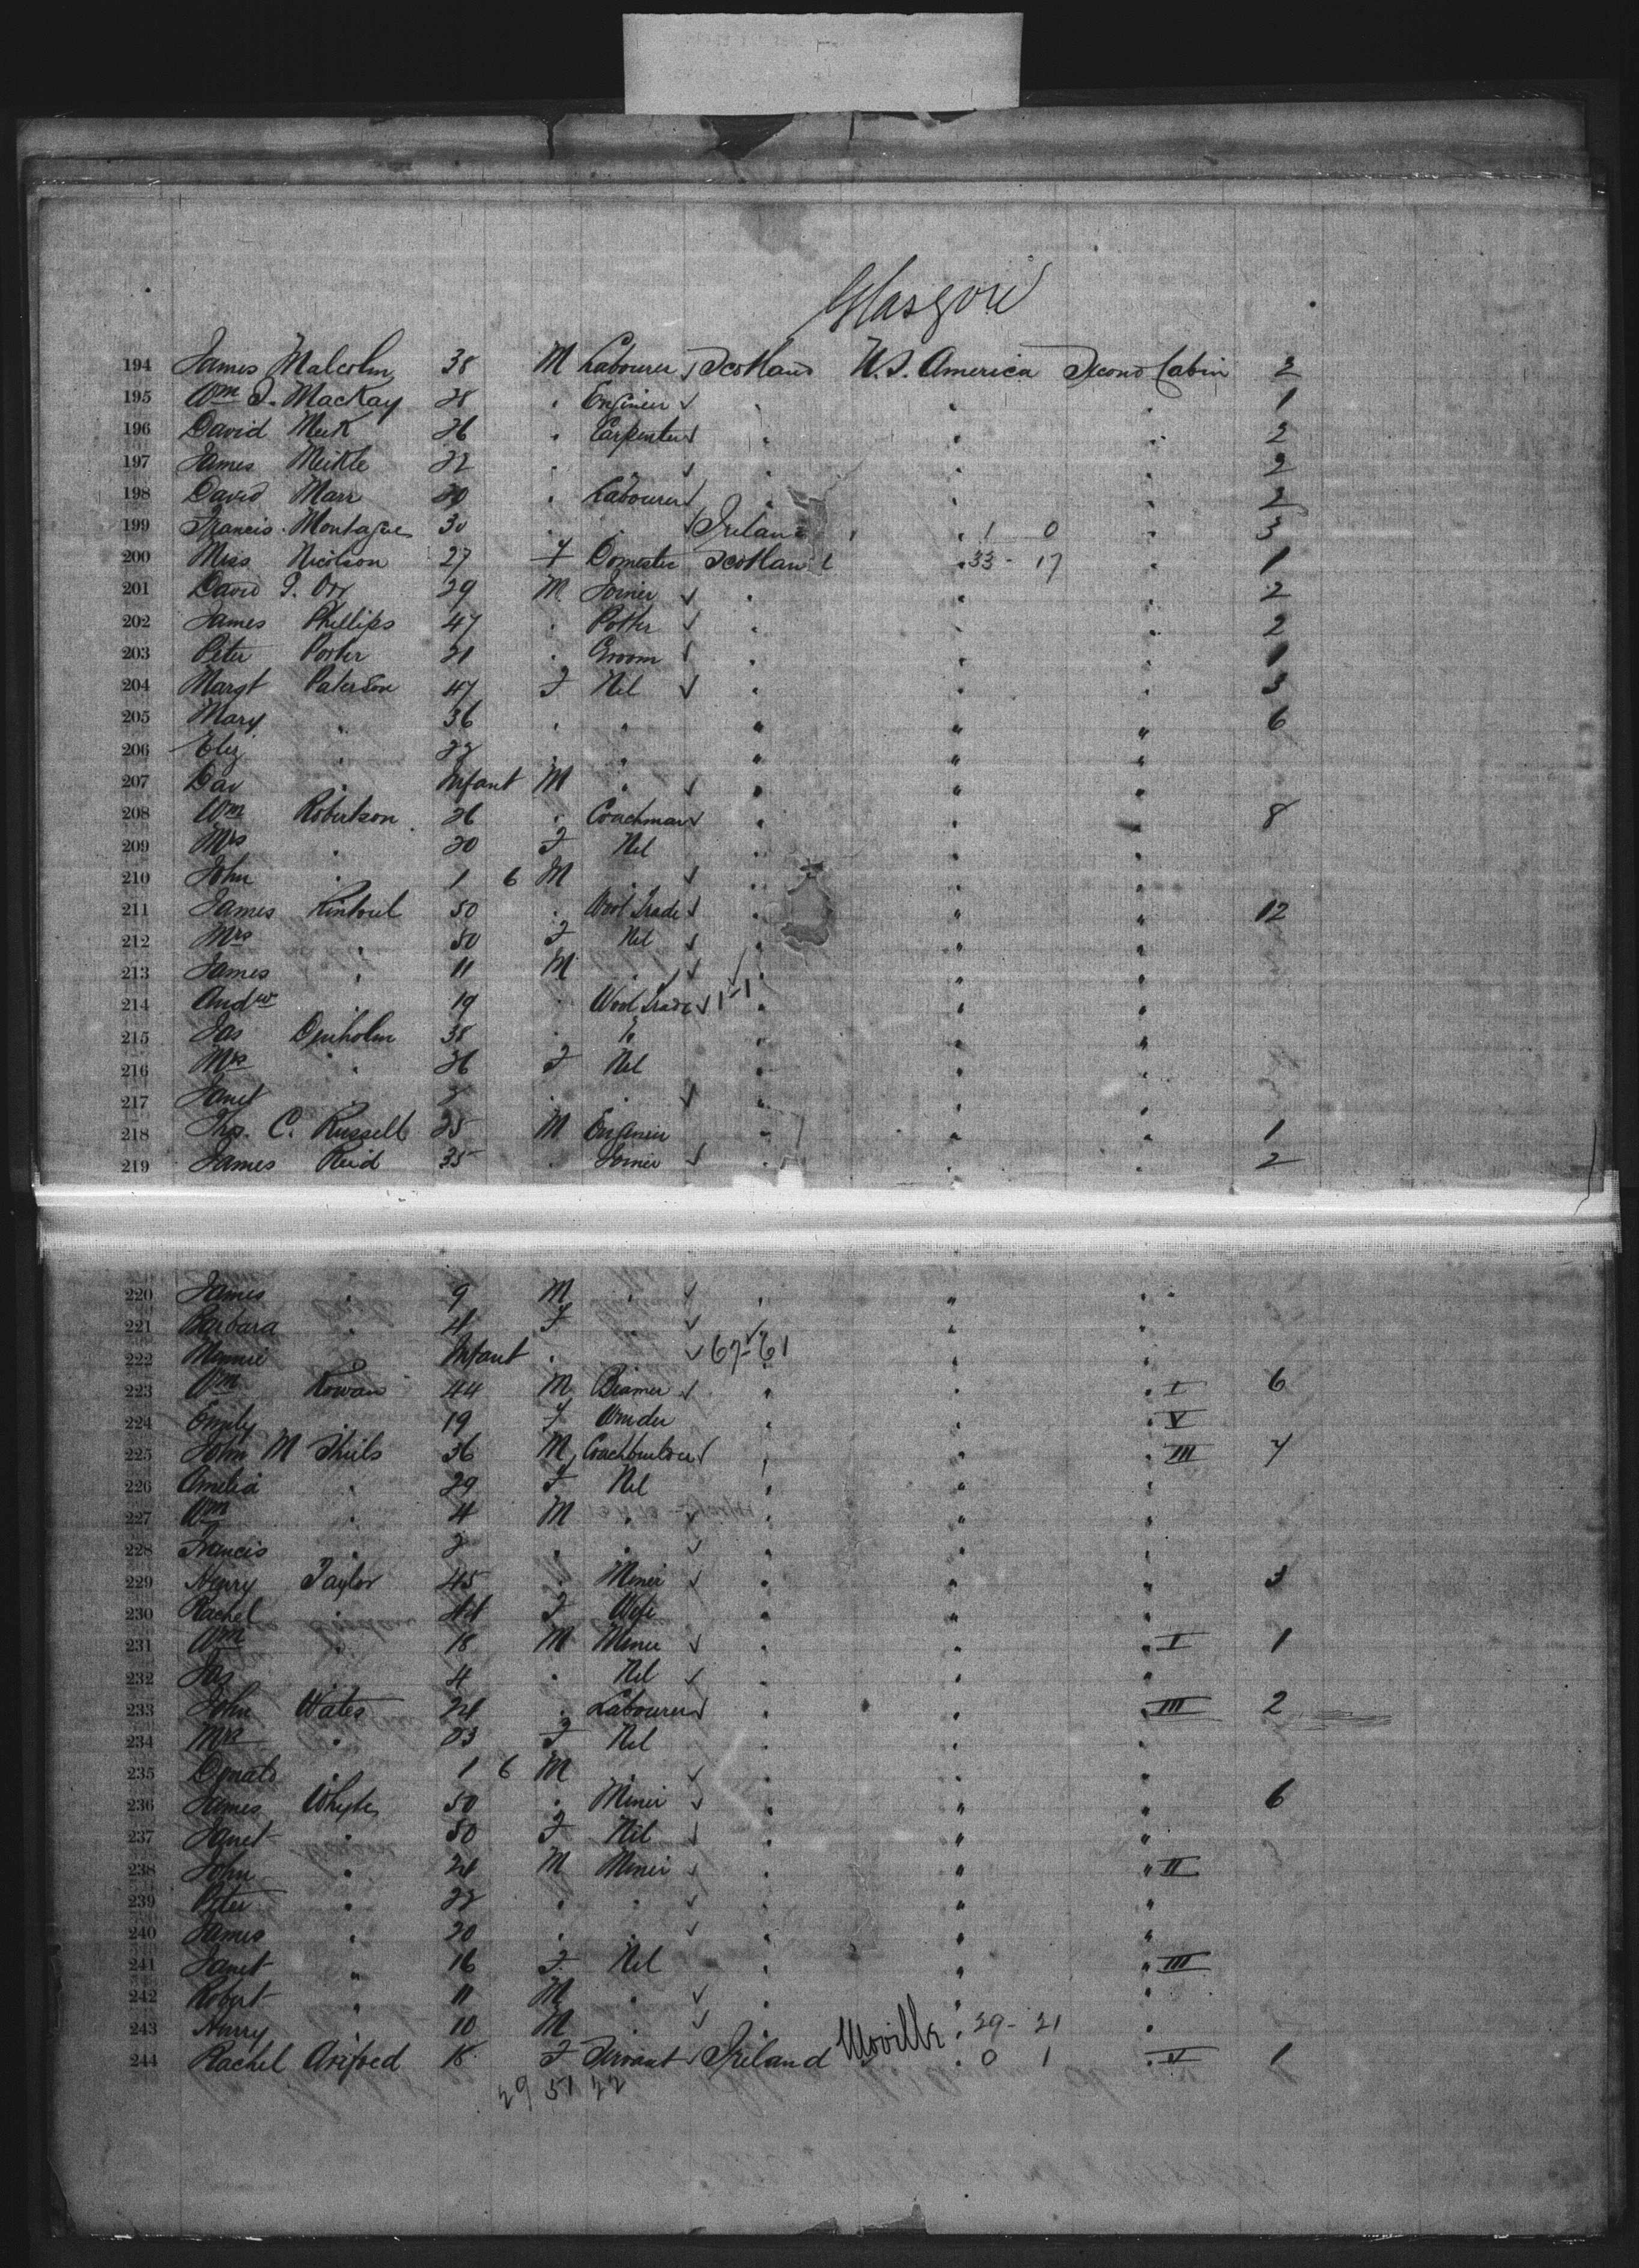 Glasgow
194 James Malcolm 38 M Labourer Scotland U.S. America Second Cabin 2
195 Wm J. MacKay 28 " Engineer " " " 1
196 David Meek 26 " Carpenter " " " 2
197 James Meikle 22 " " " " " 2
198 David Marr 20 " Labourer " " " 2
199 Francis Montague 30 " " Ireland " 1 0 " 3
200 Miss Nicolson 27 F Domestic Scotland " 33 - 17 " 1
201 David P. Orr 29 M Joiner " " " 2
202 James Phillips 47 " Potter " " " 2
203 Peter Porter 21 " Groom " " " 1
204 Margt Paterson 47 F Nil " " " 3
205 Mary " 36 " " " " " 6
206 Eliz " 22 " " " " "
207 Dav " Infant M " " " "
208 Wm Robertson 26 " Coachman " " " 8
209 Mrs " 20 F Nil " " "
210 John " 1 6 M " " " "
211 James Rintoul 50 " Wool Trade " " " 12
212 Mrs " 50 F Nil " " "
213 James " 11 M " " " "
214 Andw " 19 " Wool Trade 1-1 " " "
215 Jas Denholm 38 " " " "
216 Mrs " 26 F Nil " " "
217 Janet " 2 " " " " "
218 Thos. C. Russell 25 M Engineer " " " 1
219 James Reid 35 " Joiner " " " 2
220 James " 9 M " " " "
221 Barbara " 4 F " " " "
222 Minnie " Infant " 67-61 " " "
223 Wm Rowan 44 M Beamer " " " I 6
224 Emily " 19 F Winder " " " V
225 John M Shiels 36 M Coachbuilder " " " III 7
226 Amelia " 29 F Nil " " "
227 Wm " 4 M " " " "
228 Francis " 2 " " " " "
229 Henry Taylor 45 " Miner " " " 3
230 Rachel " 44 F Wife " " "
231 Wm " 18 M Miner " " " I 1
232 Jos " 4 " Nil " " "
233 John Wates 24 " Labourer " " " III 2
234 Mrs " 23 F Nil " " "
235 Donald " 1 6 M " " " "
236 James Whyte 50 " Miner " " " 6
237 Janet " 50 F Nil " " "
238 John " 24 M Miner " " " II
239 Peter " 22 " " " " "
240 James " 20 " " " " "
241 Janet " 16 F Nil " " " III
242 Robert " 11 M " " " "
243 Harry " 10 M " " " 29 - 21 "
244 Rachel 18 F Servant Ireland Moville " 0 1 " V 1
29 51 22